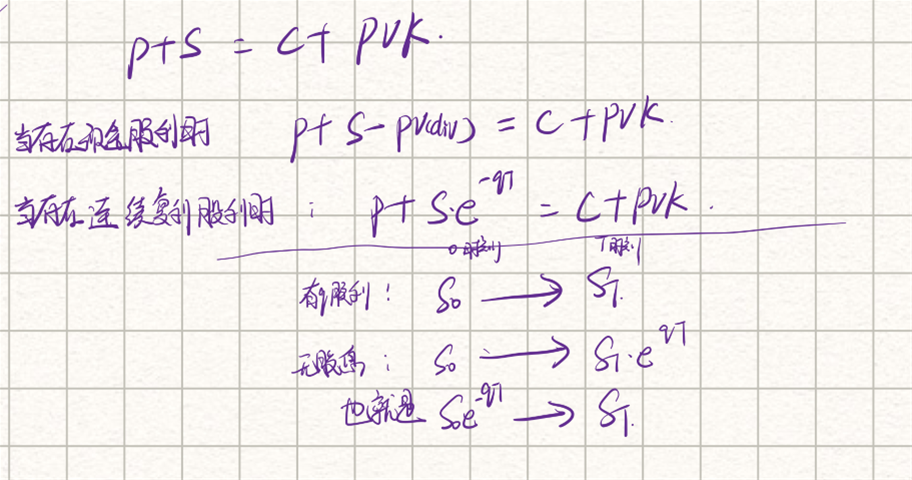 p+S = C+ PVK.
当存在现金股利时 p+ S-PV(div) = C+PVK.
当存在连续复利股利时 : p+ S·e^-qT = C+PVK.
0时刻 T时刻
有q股利: S₀ → S_T.
无股息: S₀ → S_T·e^qT
也就是 S₀e^-qT → S_T.